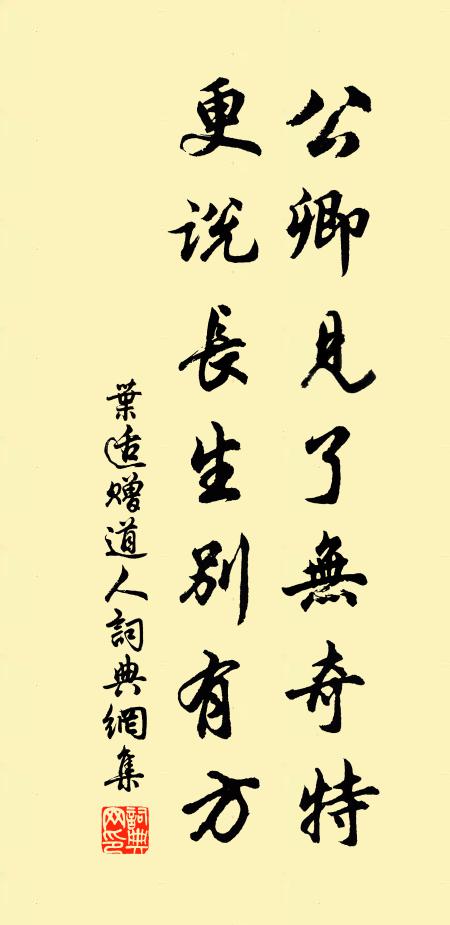 公卿見了無奇特
更説長生別有方
葉适贈道人詞典網集
詞典网印